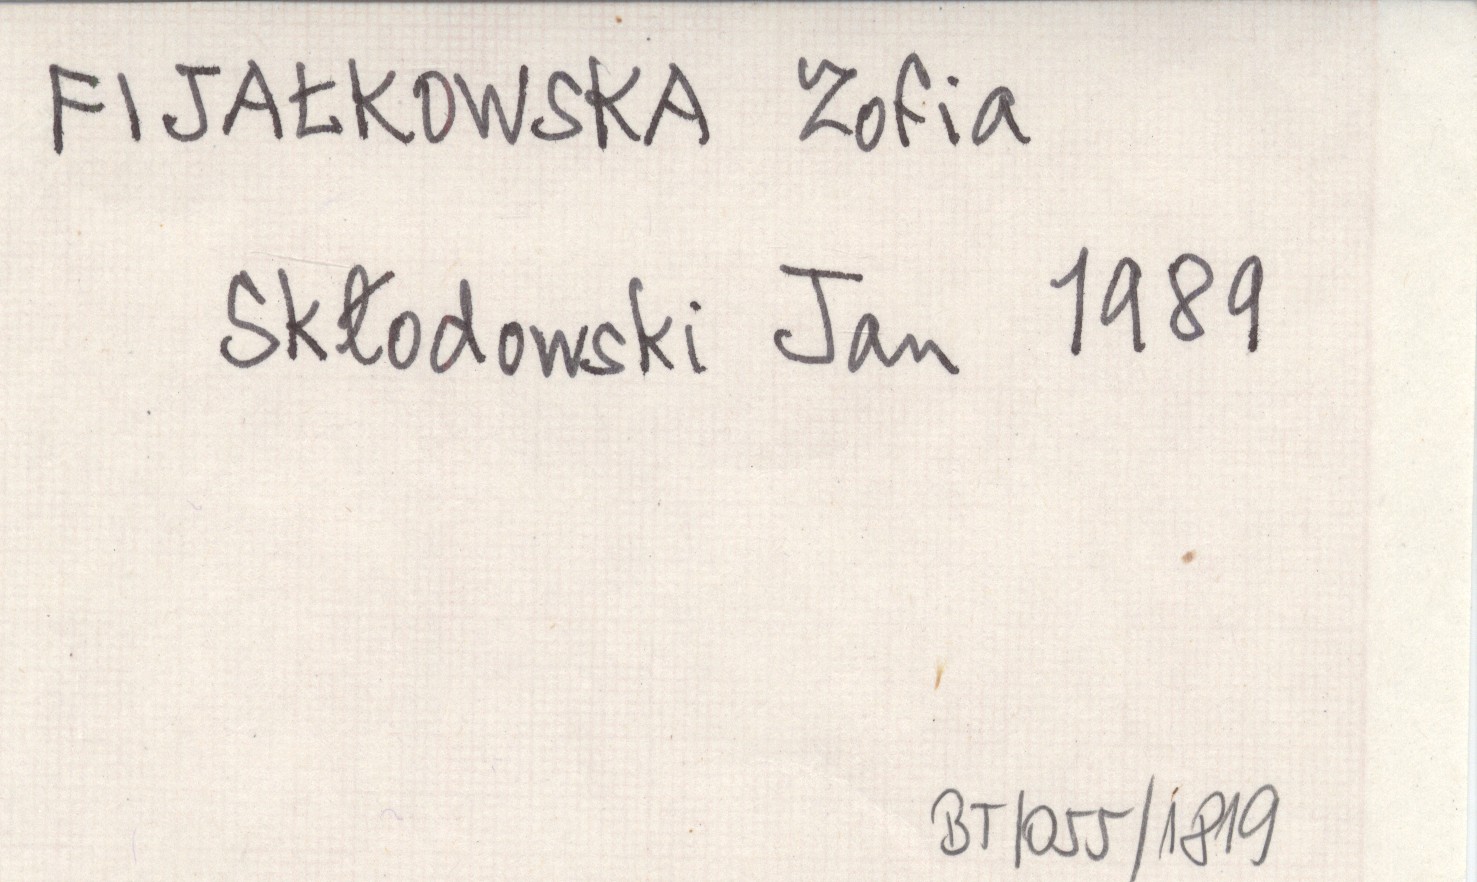 FIJAŁKOWSKA Zofia
Skłodowski Jan 1989
BT/055/1819